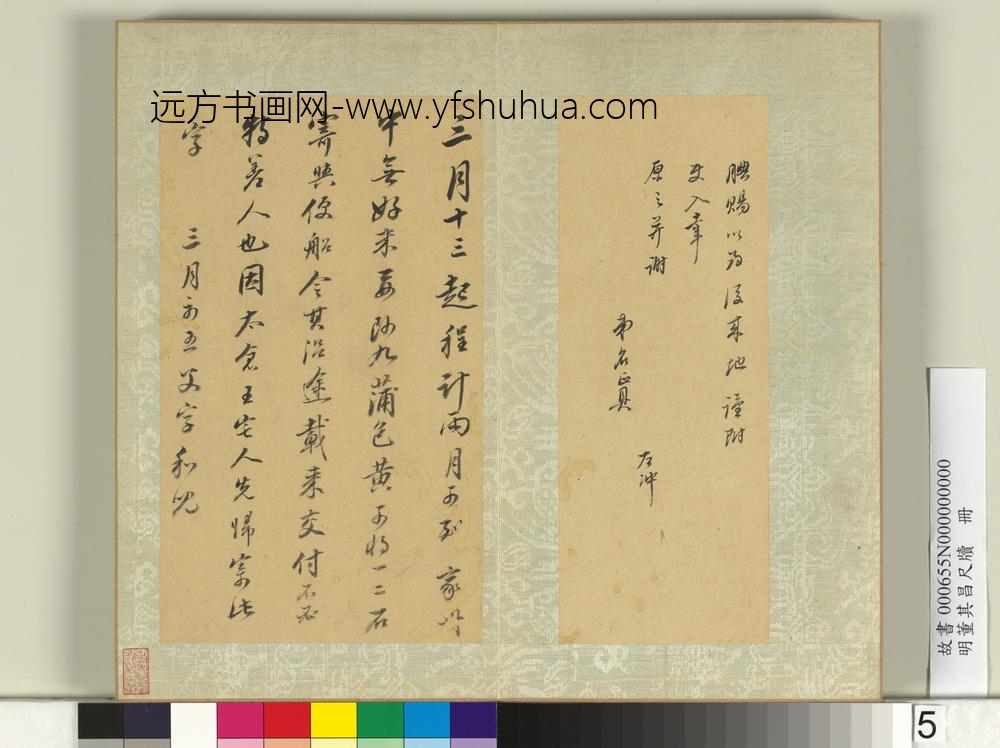 远方书画网-www.yfshuhua.com
賜以為後來地謹附
使入幸
原之并謝
弟名正具
左沖
三月十三起程計兩月可到家
中無好米要即九蒲包黃可將一二石
寄與便船令其沿途載來交付不必
特差人也因太倉王宅人先歸寄此
字 三月初五父字和兒
故書 000655N000000000
明董其昌尺牘 冊
5